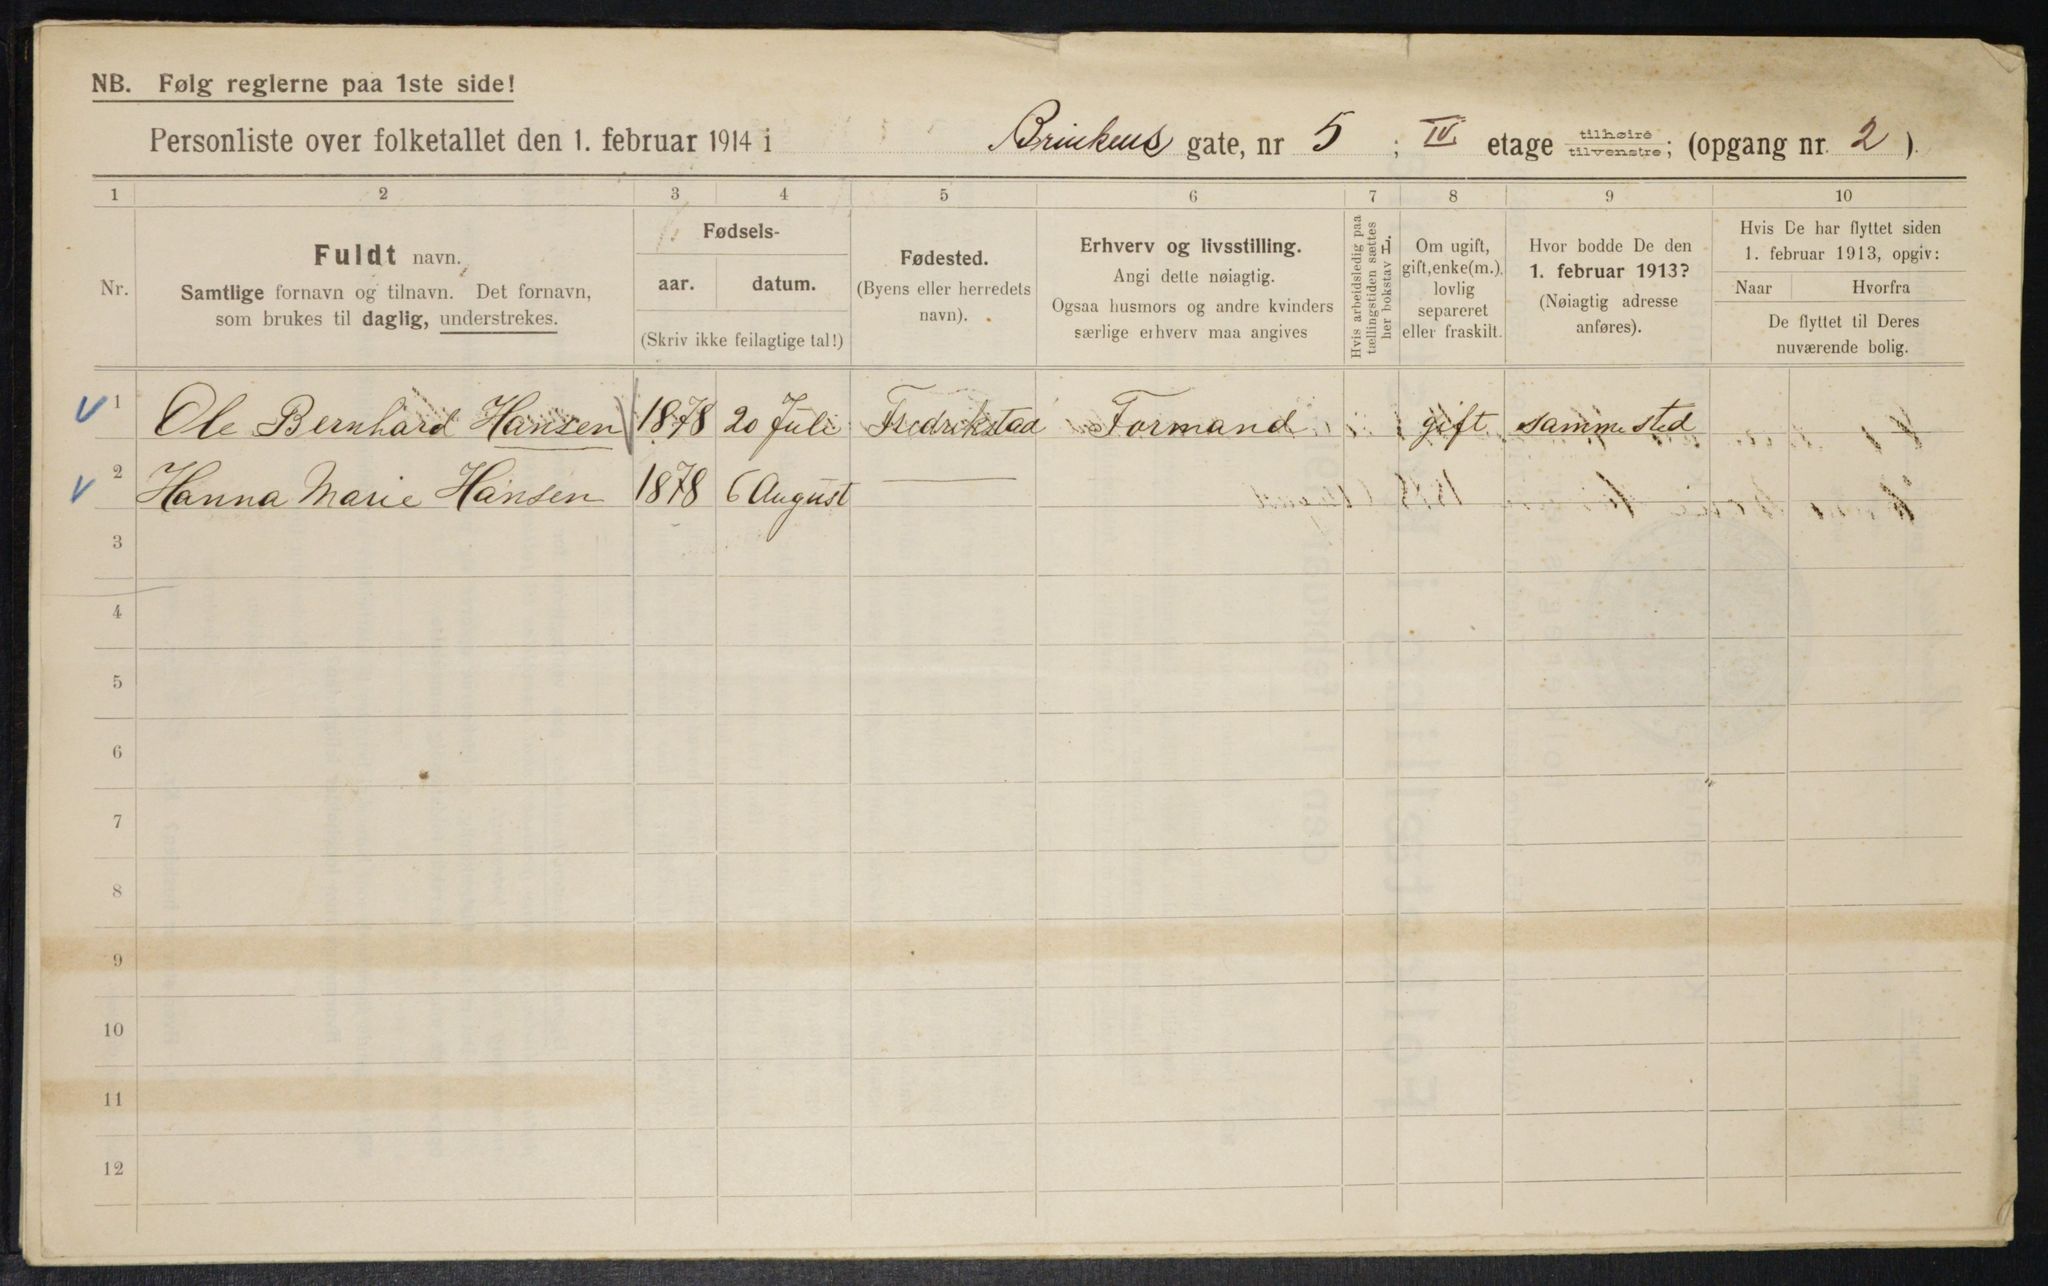 NB. Følg reglerne paa 1ste side!
Personliste over folketallet den 1. februar 1914 i Brinkens gate, nr 5 ; IV etage tilhøire tilvenstre; (opgang nr. 2 ).
1 2 3 4 5 6 7 8 9 10
Nr.
Fuldt navn.
Samtlige fornavn og tilnavn. Det fornavn,
som brukes til daglig, understrekes.
Fødsels-
aar. datum.
(Skriv ikke feilagtige tal!)
Fødested.
(Byens eller herredets
navn).
Erhverv og livsstilling.
Angi dette nøiagtig.
Ogsaa husmors og andre kvinders
særlige erhverv maa angives
Hvis arbeidsledig paa
tællingstiden sættes
her bokstav L.
Om ugift,
gift, enke(m.),
lovlig
separeret
eller fraskilt.
Hvor bodde De den
1. februar 1913?
(Nøiagtig adresse
anføres).
Hvis De har flyttet siden
1. februar 1913, opgiv:
Naar Hvorfra
De flyttet til Deres
nuværende bolig.
V 1 Ole Bernhard Hansen 1878 20 Juli Fredrikstad Formand gift sammested
V 2 Hanna Marie Hansen 1878 6 August —
3
4
5
6
7
8
9
10
11
12